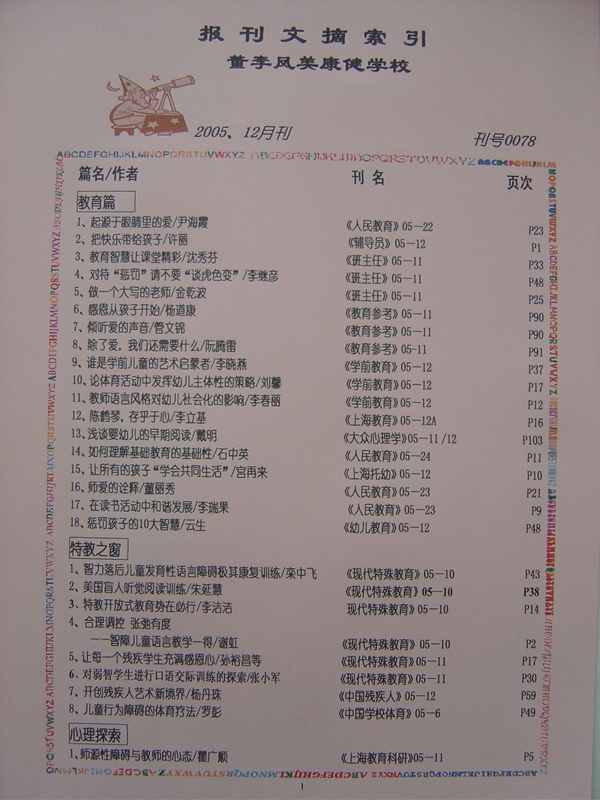 报刊文摘索引
董李凤美康健学校
2005、12月刊 刊号0078
篇名/作者 刊名 页次
教育篇
1、起源于眼睛里的爱/尹海霞 《人民教育》05-22 P23
2、把快乐带给孩子/许丽 《辅导员》05-12 P1
3、教育智慧让课堂精彩/沈秀芬 《班主任》05-11 P33
4、对待“惩罚”请不要“谈虎色变”/李继彦 《班主任》05-11 P48
5、做一个大写的老师/金乾波 《班主任》05-11 P25
6、感恩从孩子开始/杨道康 《教育参考》05-11 P90
7、倾听爱的声音/管文锦 《教育参考》05-11 P90
8、除了爱，我们还需要什么/阮腾雷 《教育参考》05-11 P91
9、谁是学前儿童的艺术启蒙者/李晓燕 《学前教育》05-12 P37
10、论体育活动中发挥幼儿主体性的策略/刘馨 《学前教育》05-12 P17
11、教师语言风格对幼儿社会化的影响/李春丽 《学前教育》05-12 P12
12、陈鹤琴，存乎于心/李立基 《上海教育》05-12A P16
13、浅谈婴幼儿的早期阅读/戴明 《大众心理学》05-11/12 P103
14、如何理解基础教育的基础性/石中英 《人民教育》05-24 P11
15、让所有的孩子“学会共同生活”/宫再来 《上海托幼》05-12 P10
16、师爱的诠释/董丽秀 《人民教育》05-23 P21
17、在读书活动中和谐发展/李瑞果 《人民教育》05-23 P9
18、惩罚孩子的10大智慧/云生 《幼儿教育》05-12 P48
特教之窗
1、智力落后儿童发育性语言障碍极其康复训练/栾中飞 《现代特殊教育》05-10 P43
2、美国盲人听觉阅读训练/朱延慧 《现代特殊教育》05-10 P38
3、特教开放式教育势在必行/李洁洁 现代特殊教育》05-10 P14
4、合理调控 张弛有度
——智障儿童语言教学一得/谢虹 《现代特殊教育》05-10 P2
5、让每一个残疾学生充满感恩心/孙裕昌等 《现代特殊教育》05-11 P17
6、对弱智学生进行口语交际训练的探索/张小军 《现代特殊教育》05-11 P30
7、开创残疾人艺术新境界/杨丹珠 《中国残疾人》05-12 P59
8、儿童行为障碍的体育疗法/罗彭 《中国学校体育》05-6 P49
心理探索
1、师源性障碍与教师的心态/瞿广顺 《上海教育科研》05-11 P5
1